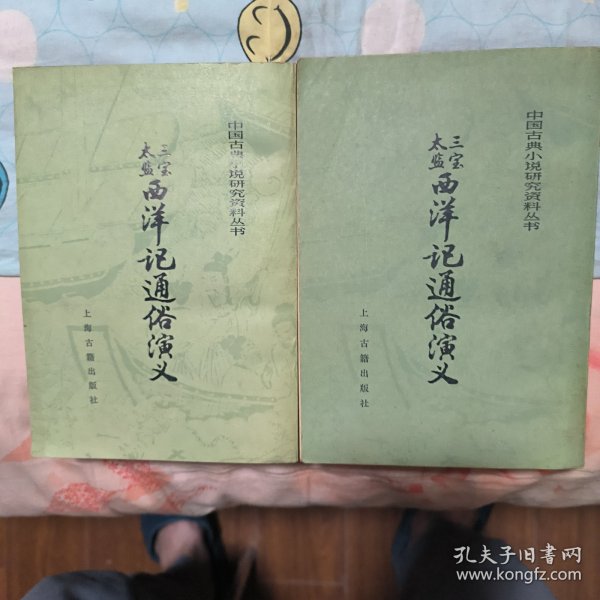 中国古典小说研究资料丛书
三宝
太监
西洋记通俗演义
上海古籍出版社
中国古典小说研究资料丛书
三宝
太监
西洋记通俗演义
上海古籍出版社
孔夫子旧书网
www.kongfz.com